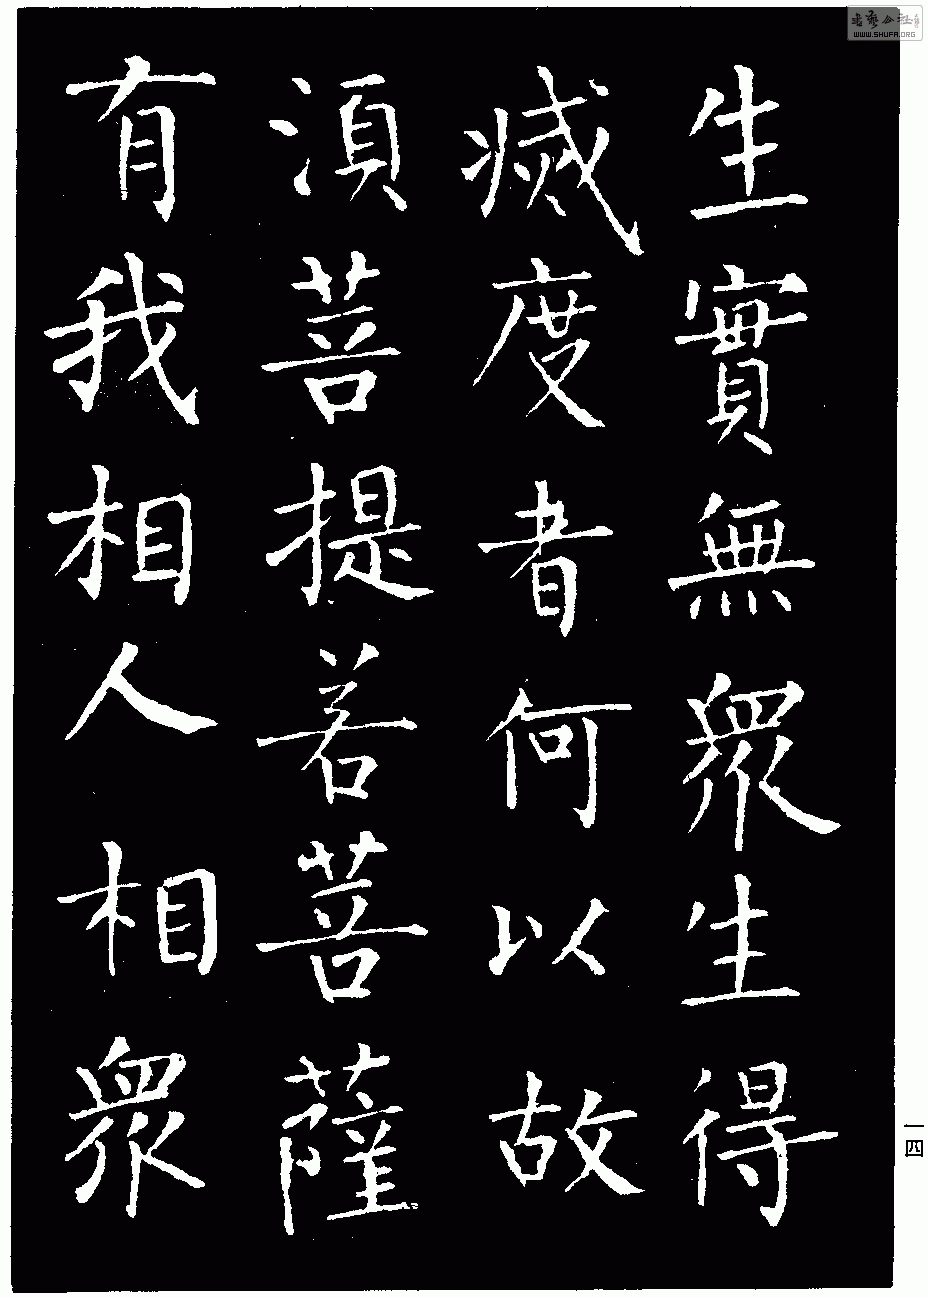 生實無衆生得
滅度者何以故
湏菩提若菩薩
有我相人相衆
一四
WWW.SHUFA.ORG